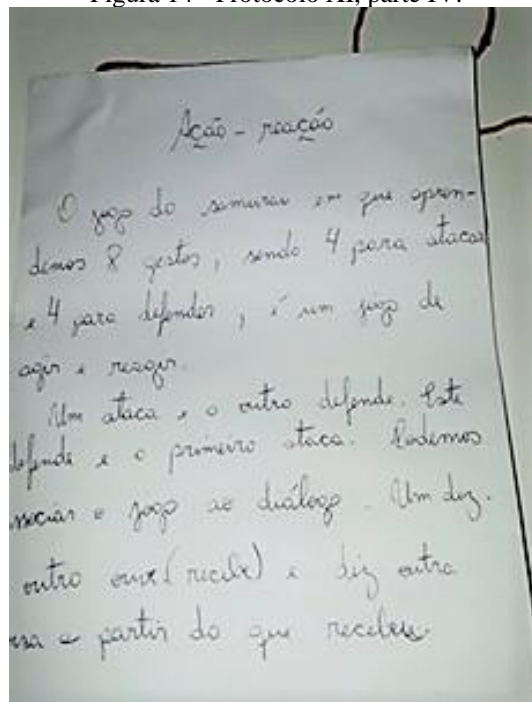 Figura 14 - Protocolo XI, parte IV.
Ação - reação
O jogo do samurai em que apren-
demos 8 gestos, sendo 4 para atacar
e 4 para defender, é um jogo de
agir e reagir.
Um ataca e o outro defende. Este
defende e o primeiro ataca. Podemos
associar o jogo ao diálogo. Um diz.
outro ouve (recebe) e diz outra
a partir do que recebeu.